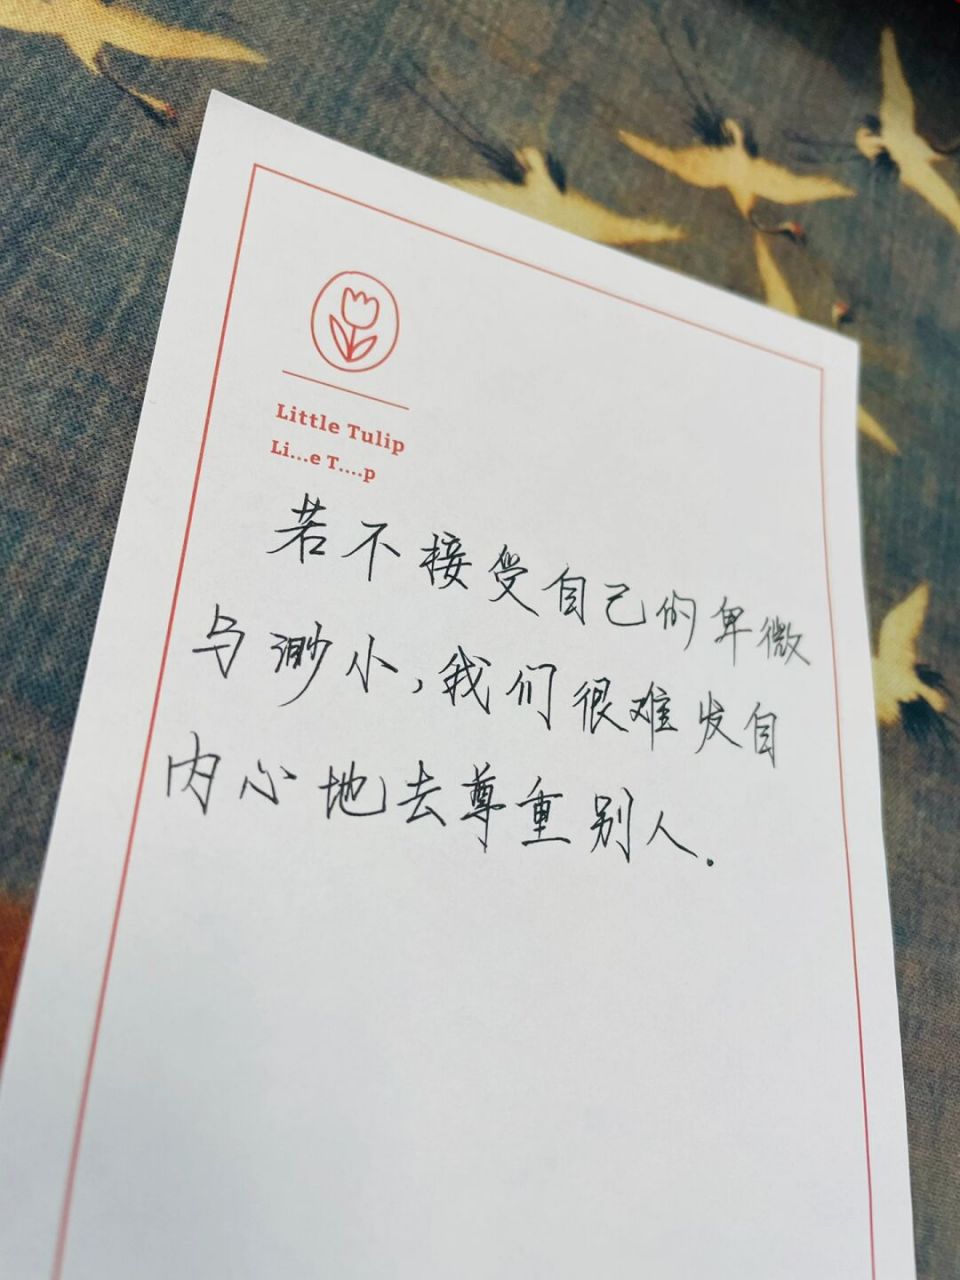 Little Tulip
Li...e T....p
若不接受自己的卑微
与渺小,我们很难发自
内心地去尊重别人.